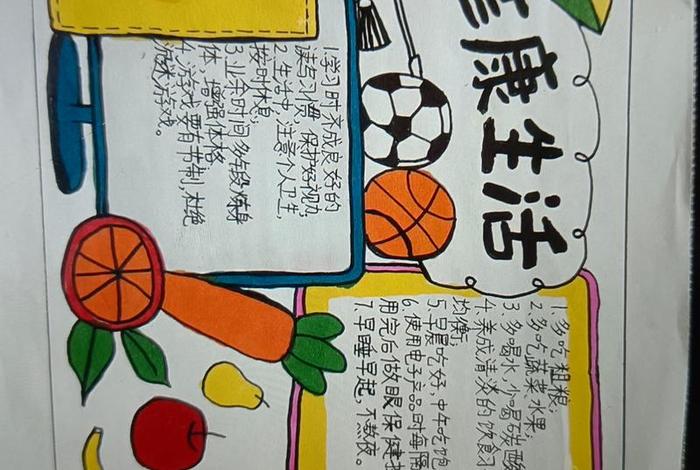 康生活
1.学习时养成良好的
读写习惯 保护好视力
2.生活中,注意个人卫生,
按时休息;
3.业余时间多锻炼身
体,增强体格
4.游戏要有节制,杜绝
沉迷游戏。
1.多吃粗粮;
2.多吃蔬菜水果
3.多喝水,少喝碳酸
4.养成清淡的饮食习
均衡
5.早晨吃好,中午吃饱
6.使用电子产品时每隔
用完后做眼保健操
7.早睡早起,不熬夜。